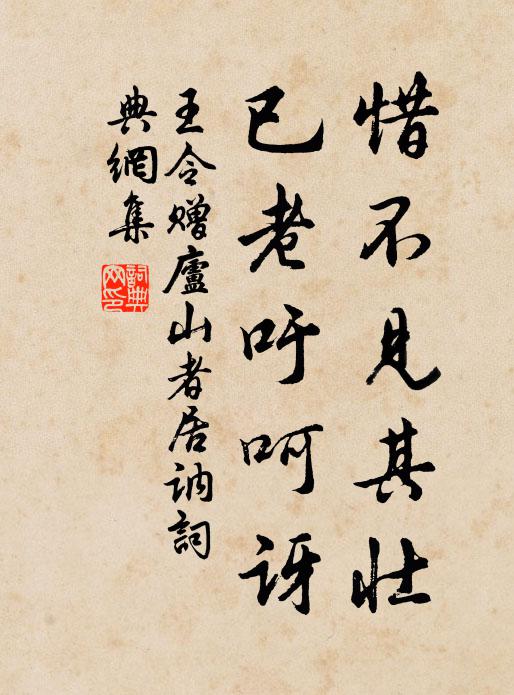 惜不見其壯
已老吁呵訝
王令贈廬山者居訥詞
典網集
詞典網印